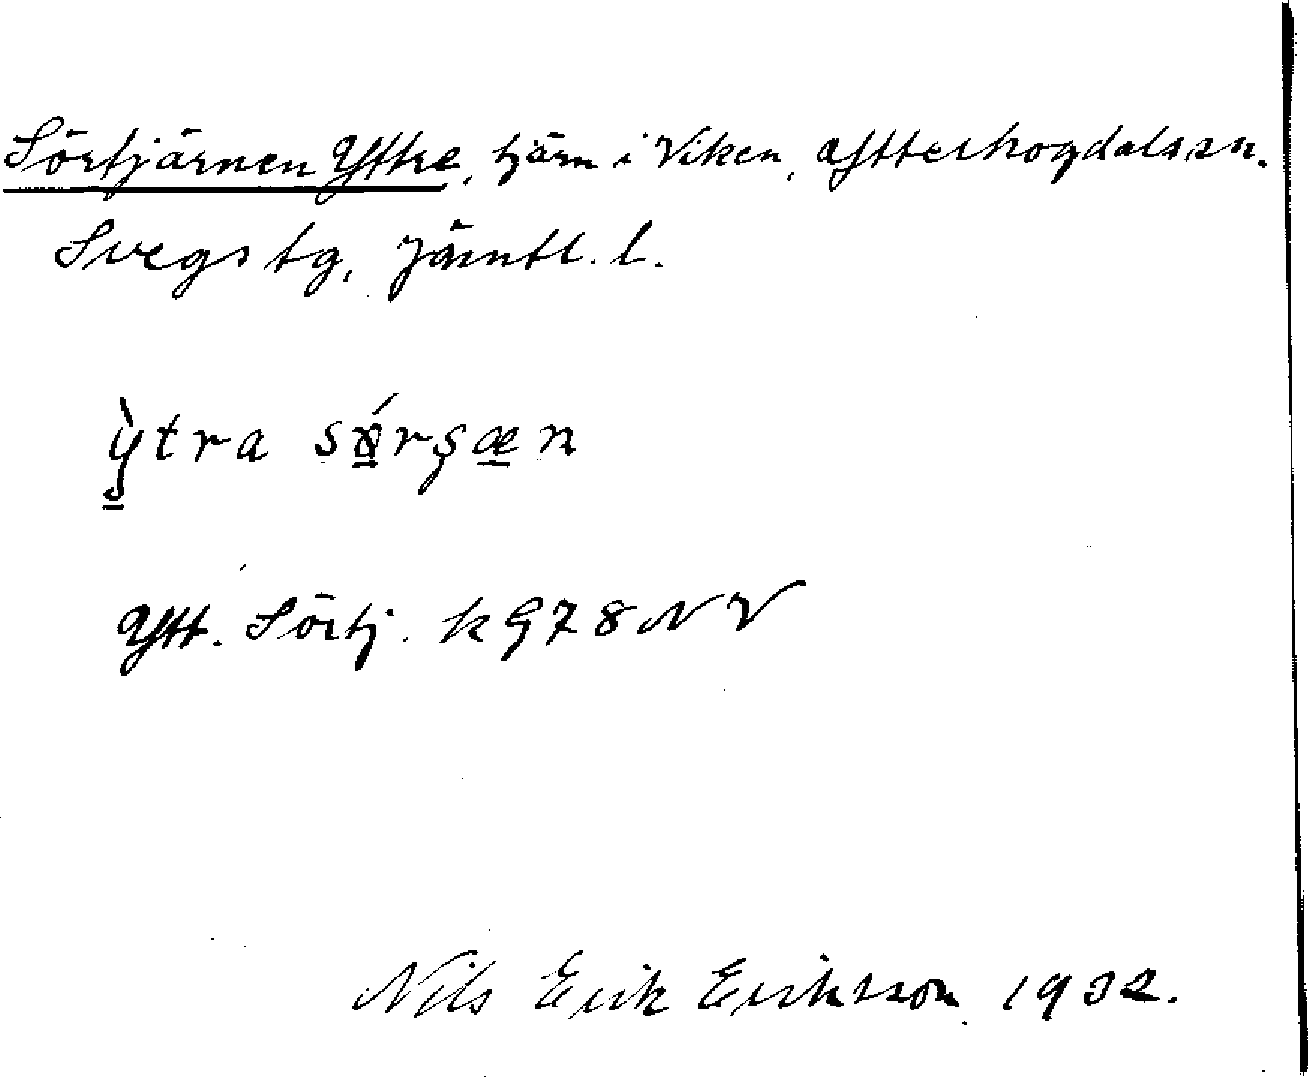 Sörtjärnen Yttre, tjärn i Viken, Ytterhogdals sn.
Svegs tg, Jämtl. l.
ỳtra sɤ́rşæn
Ytt. Sörtj. k G 7 8 NV
Nils Erik Eriksson 1932.